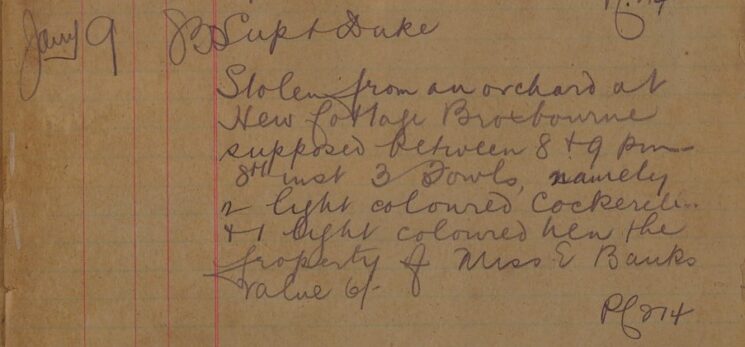 Jany 9 By Supt Duke
Stolen from an orchard at
New Cottage Broxbourne
supposed between 8 & 9 pm
8th inst 3 Fowls, namely
2 light coloured Cockerels
& 1 light coloured hen the
property of Miss E Banks
value 6/-
PC 214